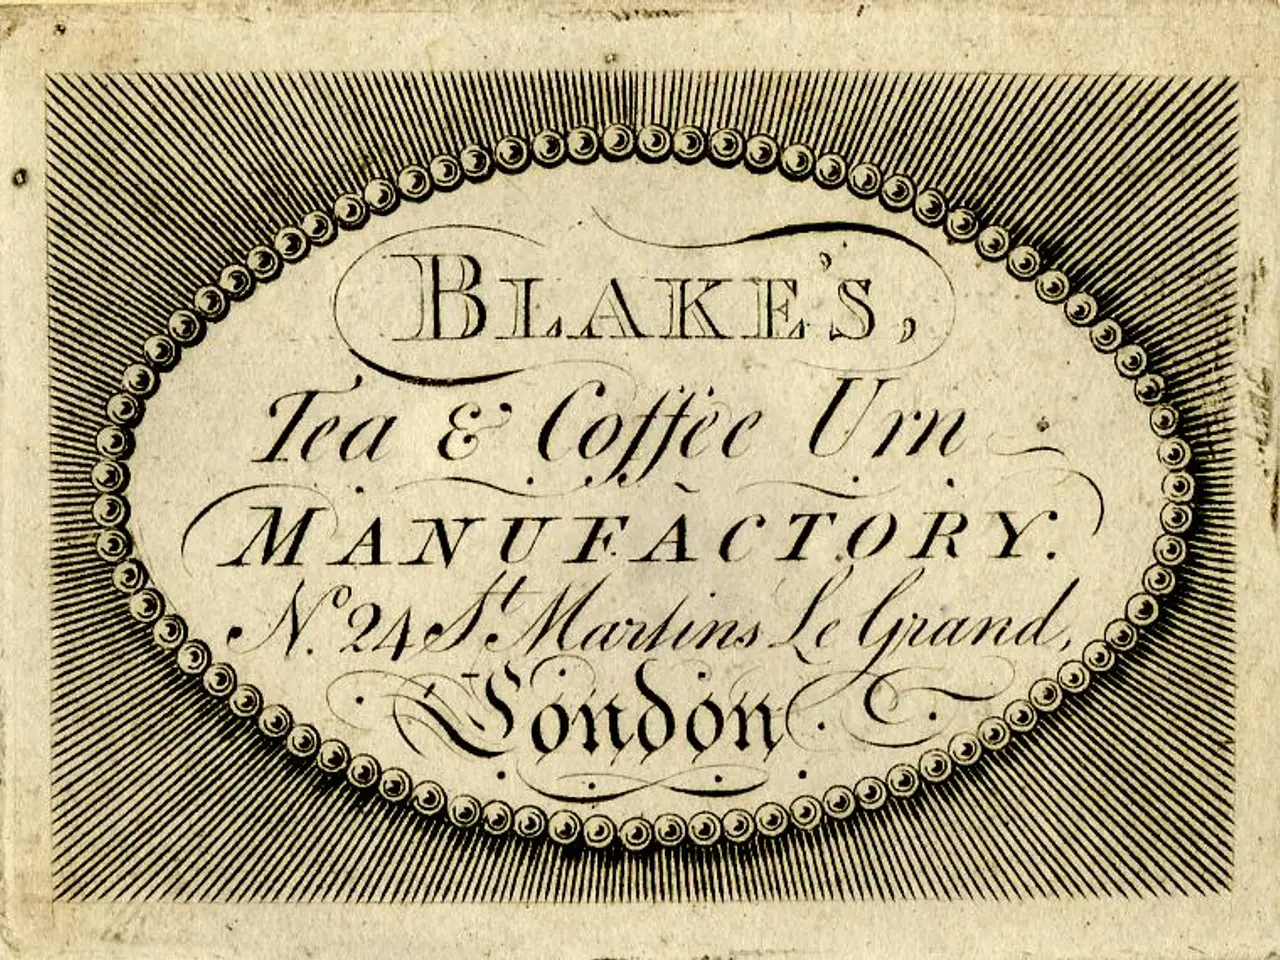 BLAKE'S,
Tea & Coffee Urn
MANUFACTORY.
No. 24 St Martins Le Grand,
London